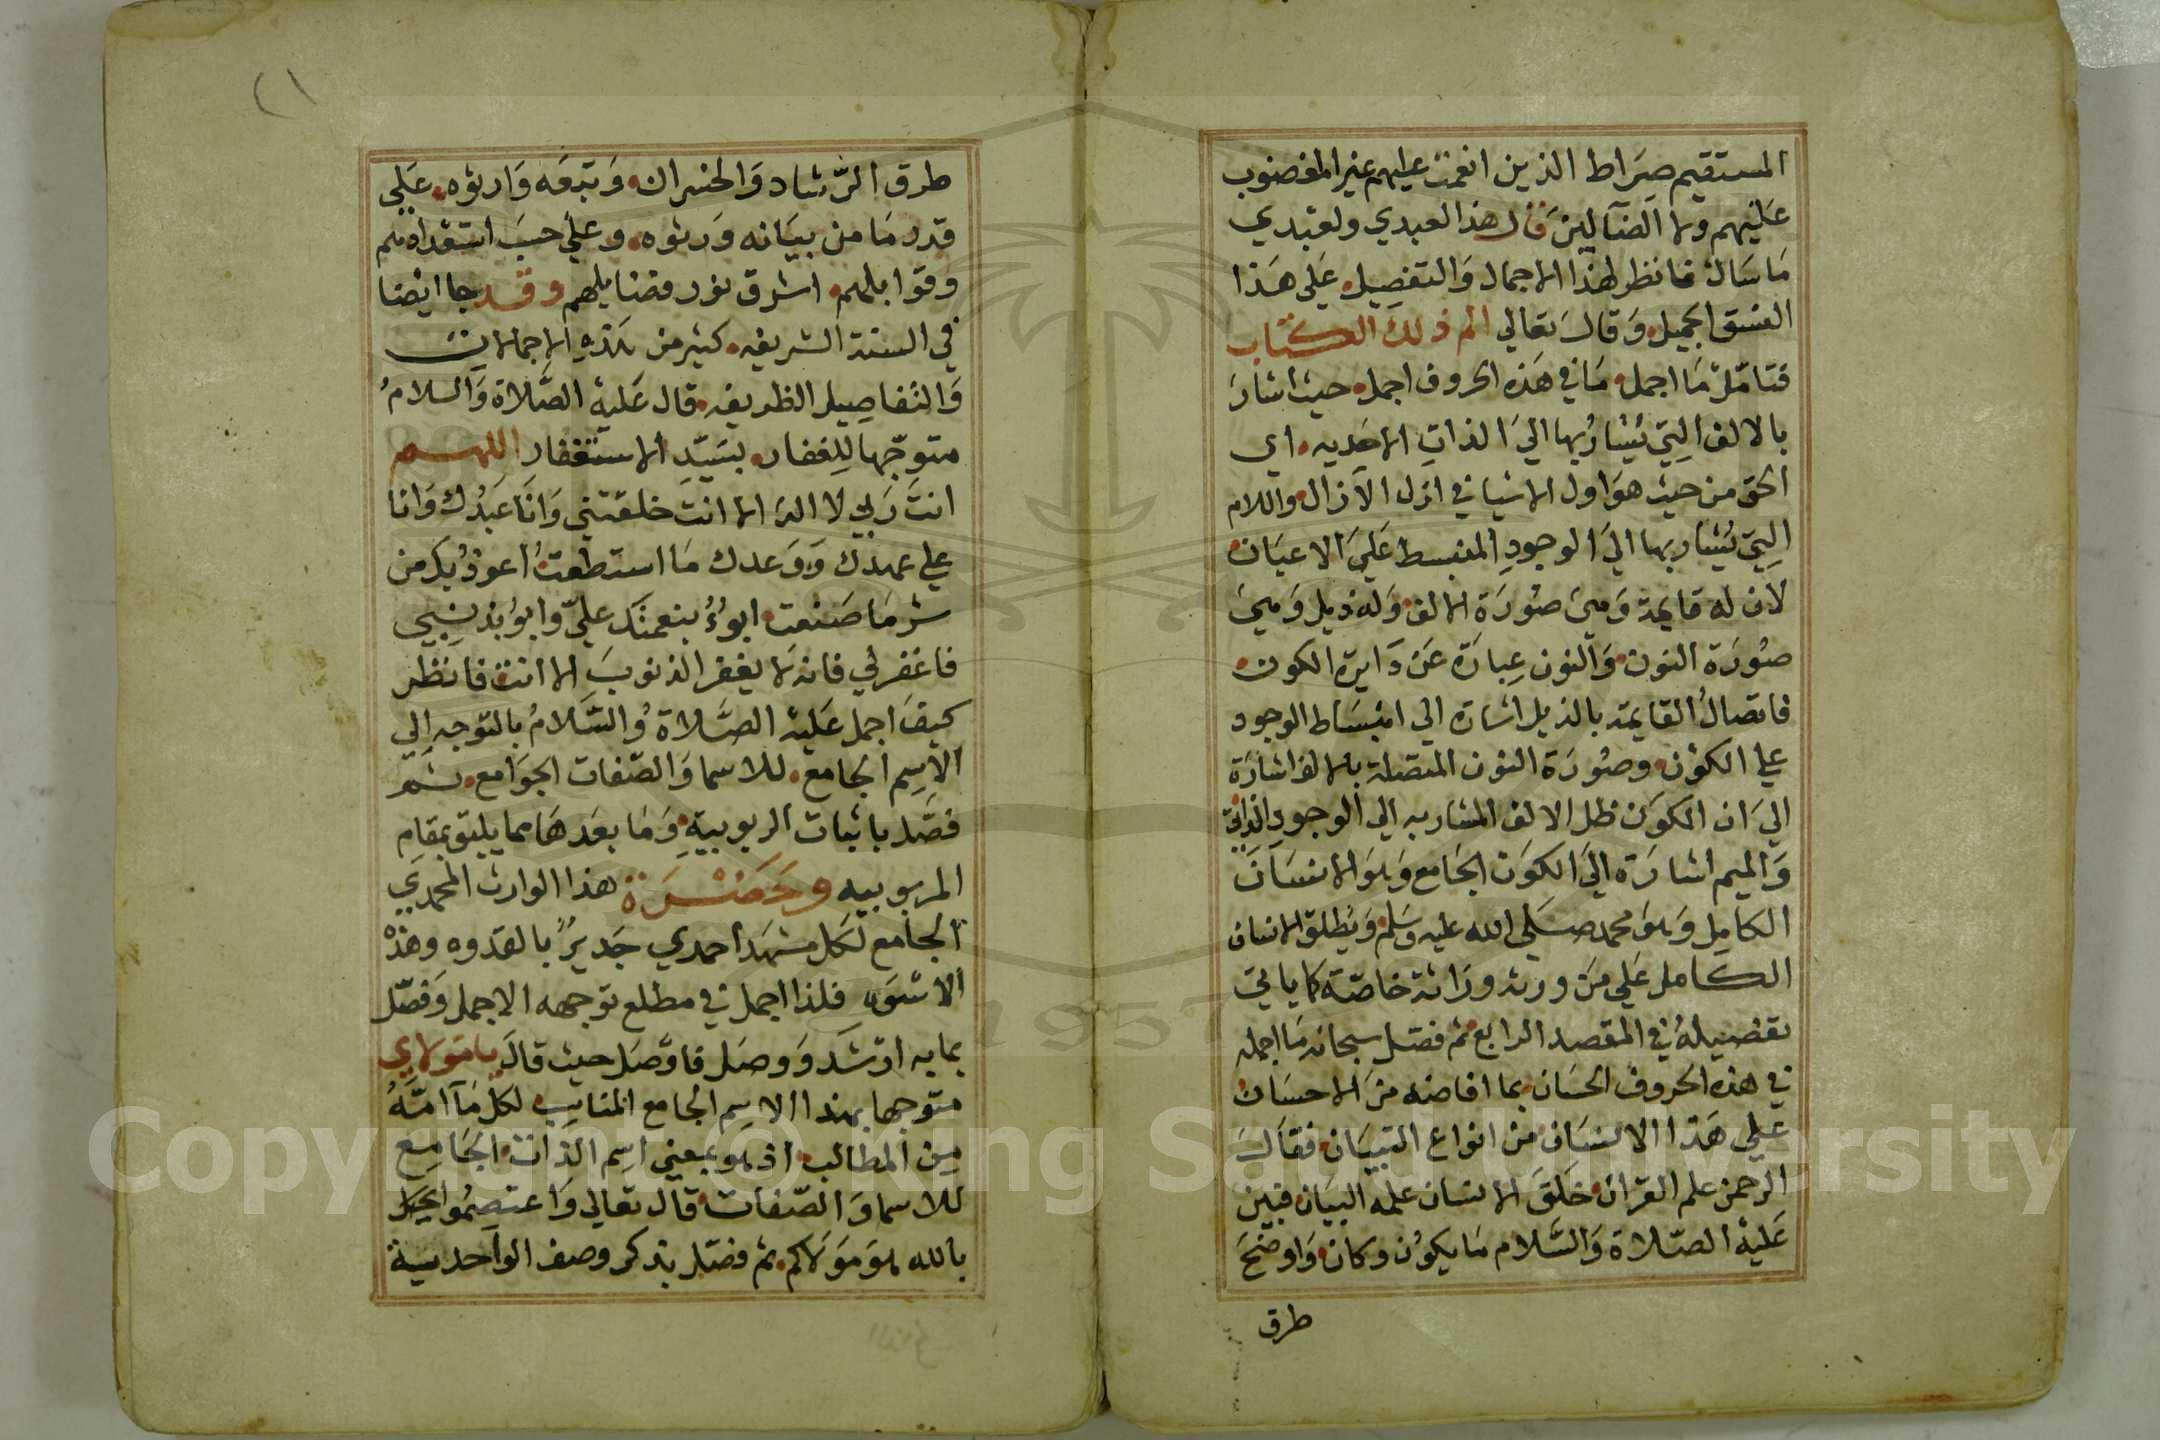 المستقيم صِرَاط الذين انعمت عليهم غير المغضوب
عَليهم ولا الضآلين قال هذا لعبدي ولعبدي
مَا سَال فانظر لهذا الاجمال وَالتفصِيل عَلى هَذا
النسق الجميل وَقال تعالى الم ذلك الكتاب
فتامّل مَا اجمل مَا في هَذه الحروف اجمل حيث اشارَ
بالالف التِي يُشَارُ بها الىَ الذاتِ الاحَديه اي
الحق من حيث هوَ اول الاشيا في ازل الآزال واللام
التِي يُشار بها الىَ الوجودِ المنبسط عَلىَ الاعيَان
لان له قايمة وَهيَ صُورَة الالف وَله ذيل وَهيَ
صُورَة النون وَالنون عِبارَة عَن دَايرة الكون
فاتصالُ القايمة بالذيل اشارَة الى انبسَاط الوجود
على الكوْن وصُورَة النون المتصلة بالالف اشارَة
الىَ ان الكوَن ظل الالف المشار به الى الوجودِ الذاتي
وَالميم اشارَة الىَ الكوَن الجَامع وَهوَ الانسَان
الكامِل وَهوَ محمد صَلى الله عليه وسَلم وَيُطلق الانسان
الكامل عَلى مَن ورثه ورَاثة خاصّة كما ياتي
تفصِيلهُ في المقصد الرابع ثم فصّل سبحانه مَا اجمله
في هذه الحروف الحسَان بما افاضه مَن الاحسَان
عَلى هَذا الانسَان من انواع التبيَان فقالَ
الرحمن علم القران خَلقَ الانسان علمه البيَان فبين
عَليهْ الصّلاة وَالسَّلام مَا يكوُن وكان وَاوضحَ
طرق
طرق الرَّشاد وَالخسران وَتبعَه وَارثوه عَلى
قدر مَا من بيَانه وَرثوه وعلى حسَب استعدادهم
وَقوابلهم اشرق نور فضايلهم وقد جا ايضا
في السنة الشريفه كثير من هَذهِ الاجمالات
وَالتفاصِيل الظريفه قال عَليهْ الصَّلاة وَالسلامُ
متوجّها لِلغفار بسَيّدِ الاستغفار اللهم
انتَ رَبي لا اله الا انت خلقتني وَانَا عَبدُك وَانا
على عهدك وَوَعدك مَا استطعت اعوذ بك من
شر مَا صَنعت ابوُءُ بنعمتك عليّ وابوُ بذنبي
فاغفر لي فانه لا يغفر الذنوبَ الا انت فانظر
كيفَ اجمل عَليه الصَّلاةُ وُالسَّلامُ بالتوجه الى
الاِسِم الجامع للاسما وَالصّفات الجوَامع ثم
فصَّل باثبات الربوبيةِ وَمَا بعَدهَا مما يليق بمقام
المربوبيه وحَضْرَة هذا الوارث المحمدي
الجامع لكل مشهَد احمدي جَديرٌ بالقدوه وهذهْ
الاسْوَه فلذا اجمل في مطلع توجهه الاجمل وَفصّل
بما به ارْشَد وَوصَل فاوّصَل حيث قالَ يا مَولاي
متوجها بهذا الاسِم الجامع المناسِب لكل مَآ امَّهُ
مِن المطالب اذ هو بمعنى اسِم الذات الجَامِع
للاسما وَالصّفات قال تعالى وَاعتصِمُوا
بالله هوَ مَوَلاكم ثم فصّل بذكر وصف الواحديةِ